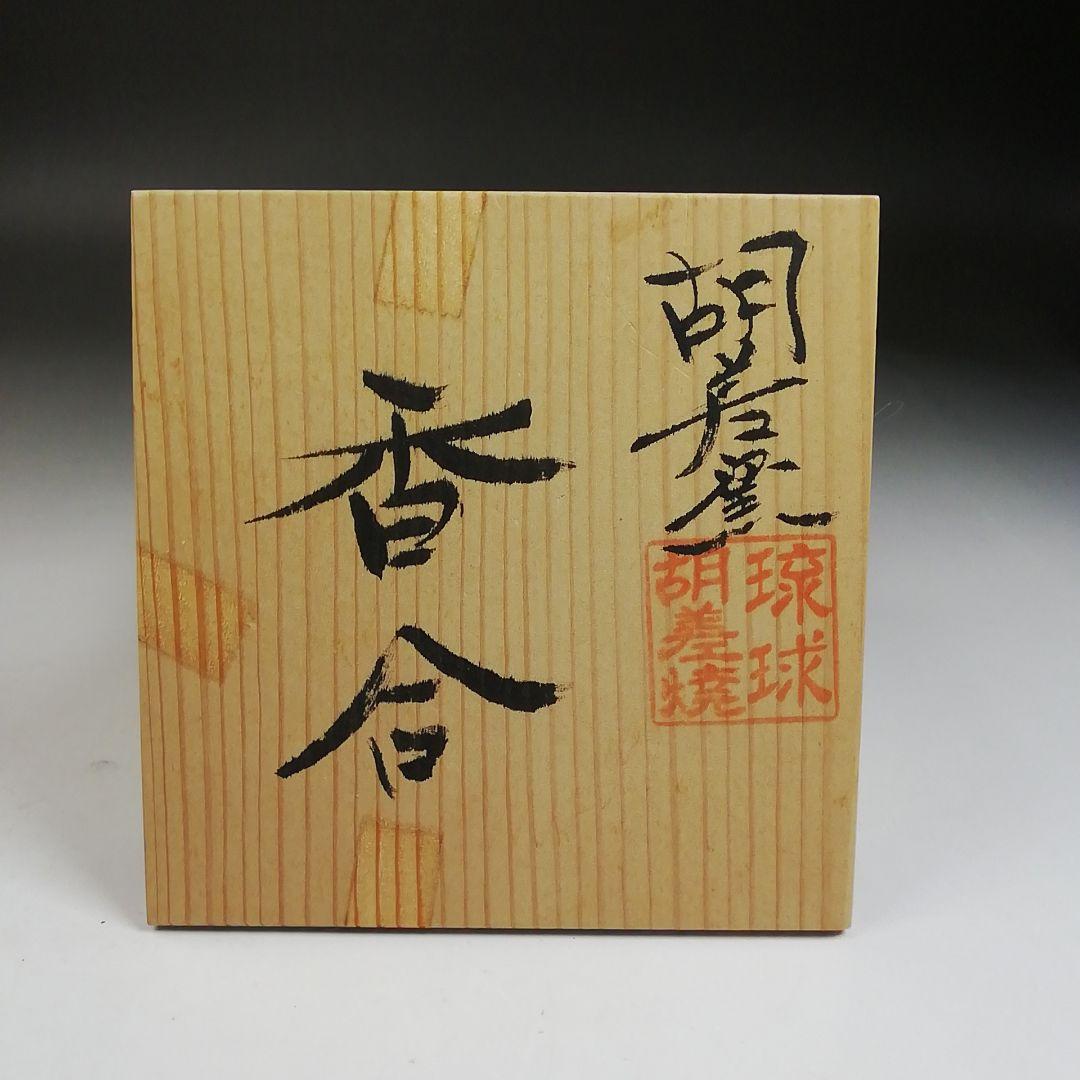 胡差窯
琉球
胡差焼
香合